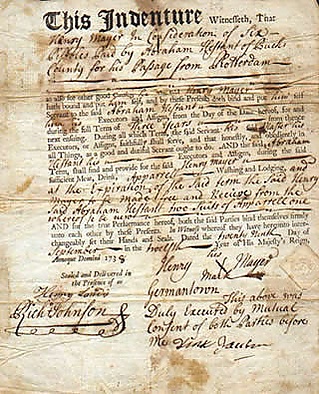 This Indenture Witnesseth, That
Henry Mayer In Consideration of Six
Pistoles Paid by Abraham Hestant of Bucks
County for his Passage from Rotterdam
as also for other good Causes, he the said Henry Mayer
hath bound and put him self, and by these Presents doth bind and put him self
Servant to the said Abraham Hestant
Executors and Assigns, from the Day of the Date hereof, for and
during the full Term of Three Years from thence
next ensuing. During all which Term, the said Servant his said
Executors, or Assigns, faithfully shall serve, and that honestly and obediently in
all Things, as a good and dutiful Servant ought to do. AND the said Abraham
Hestant his Executors and Assigns, during the said
Term, shall find and provide for the said Henry Mayer
sufficient Meat, Drink, Apparel Washing and Lodging, and
at the Expiration of the said term the said Henry
Mayer to be made free and Receive from the
said Abraham Hestant two Suits of Apparrel one
whereof to be new
AND for the true Performance hereof, both the said Parties bind themselves firmly
unto each other by these Presents. In Witness whereof they have hereunto interchangeably
set their Hands and Seals. Dated the Day of
September in the twelfth Year of His Majesty's Reign,
Annoque Domini 1738
Henry Mayer
mark
Sealed and Delivered in
the Presence of us
Rich Johnson
Germantown
This above was
Duly Executed by Mutual
Consent of both Parties before
me